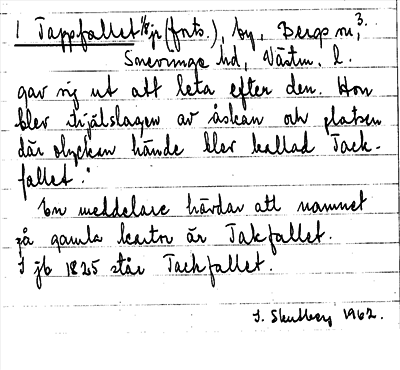 1 Tappfallet 1/8 jp (forts.), by, Bergs sn, 3.
Snevringe hd, Västm. l.
gav sig ut att leta efter den. Hon
blev ihjälslagen av åskan och platsen
där olyckan hände blev kallad Tack-
fallet."
En meddelare hävdar att namnet
på gamla kartor är Takfallet.
I jb 1825 står Tackfallet.
1962.